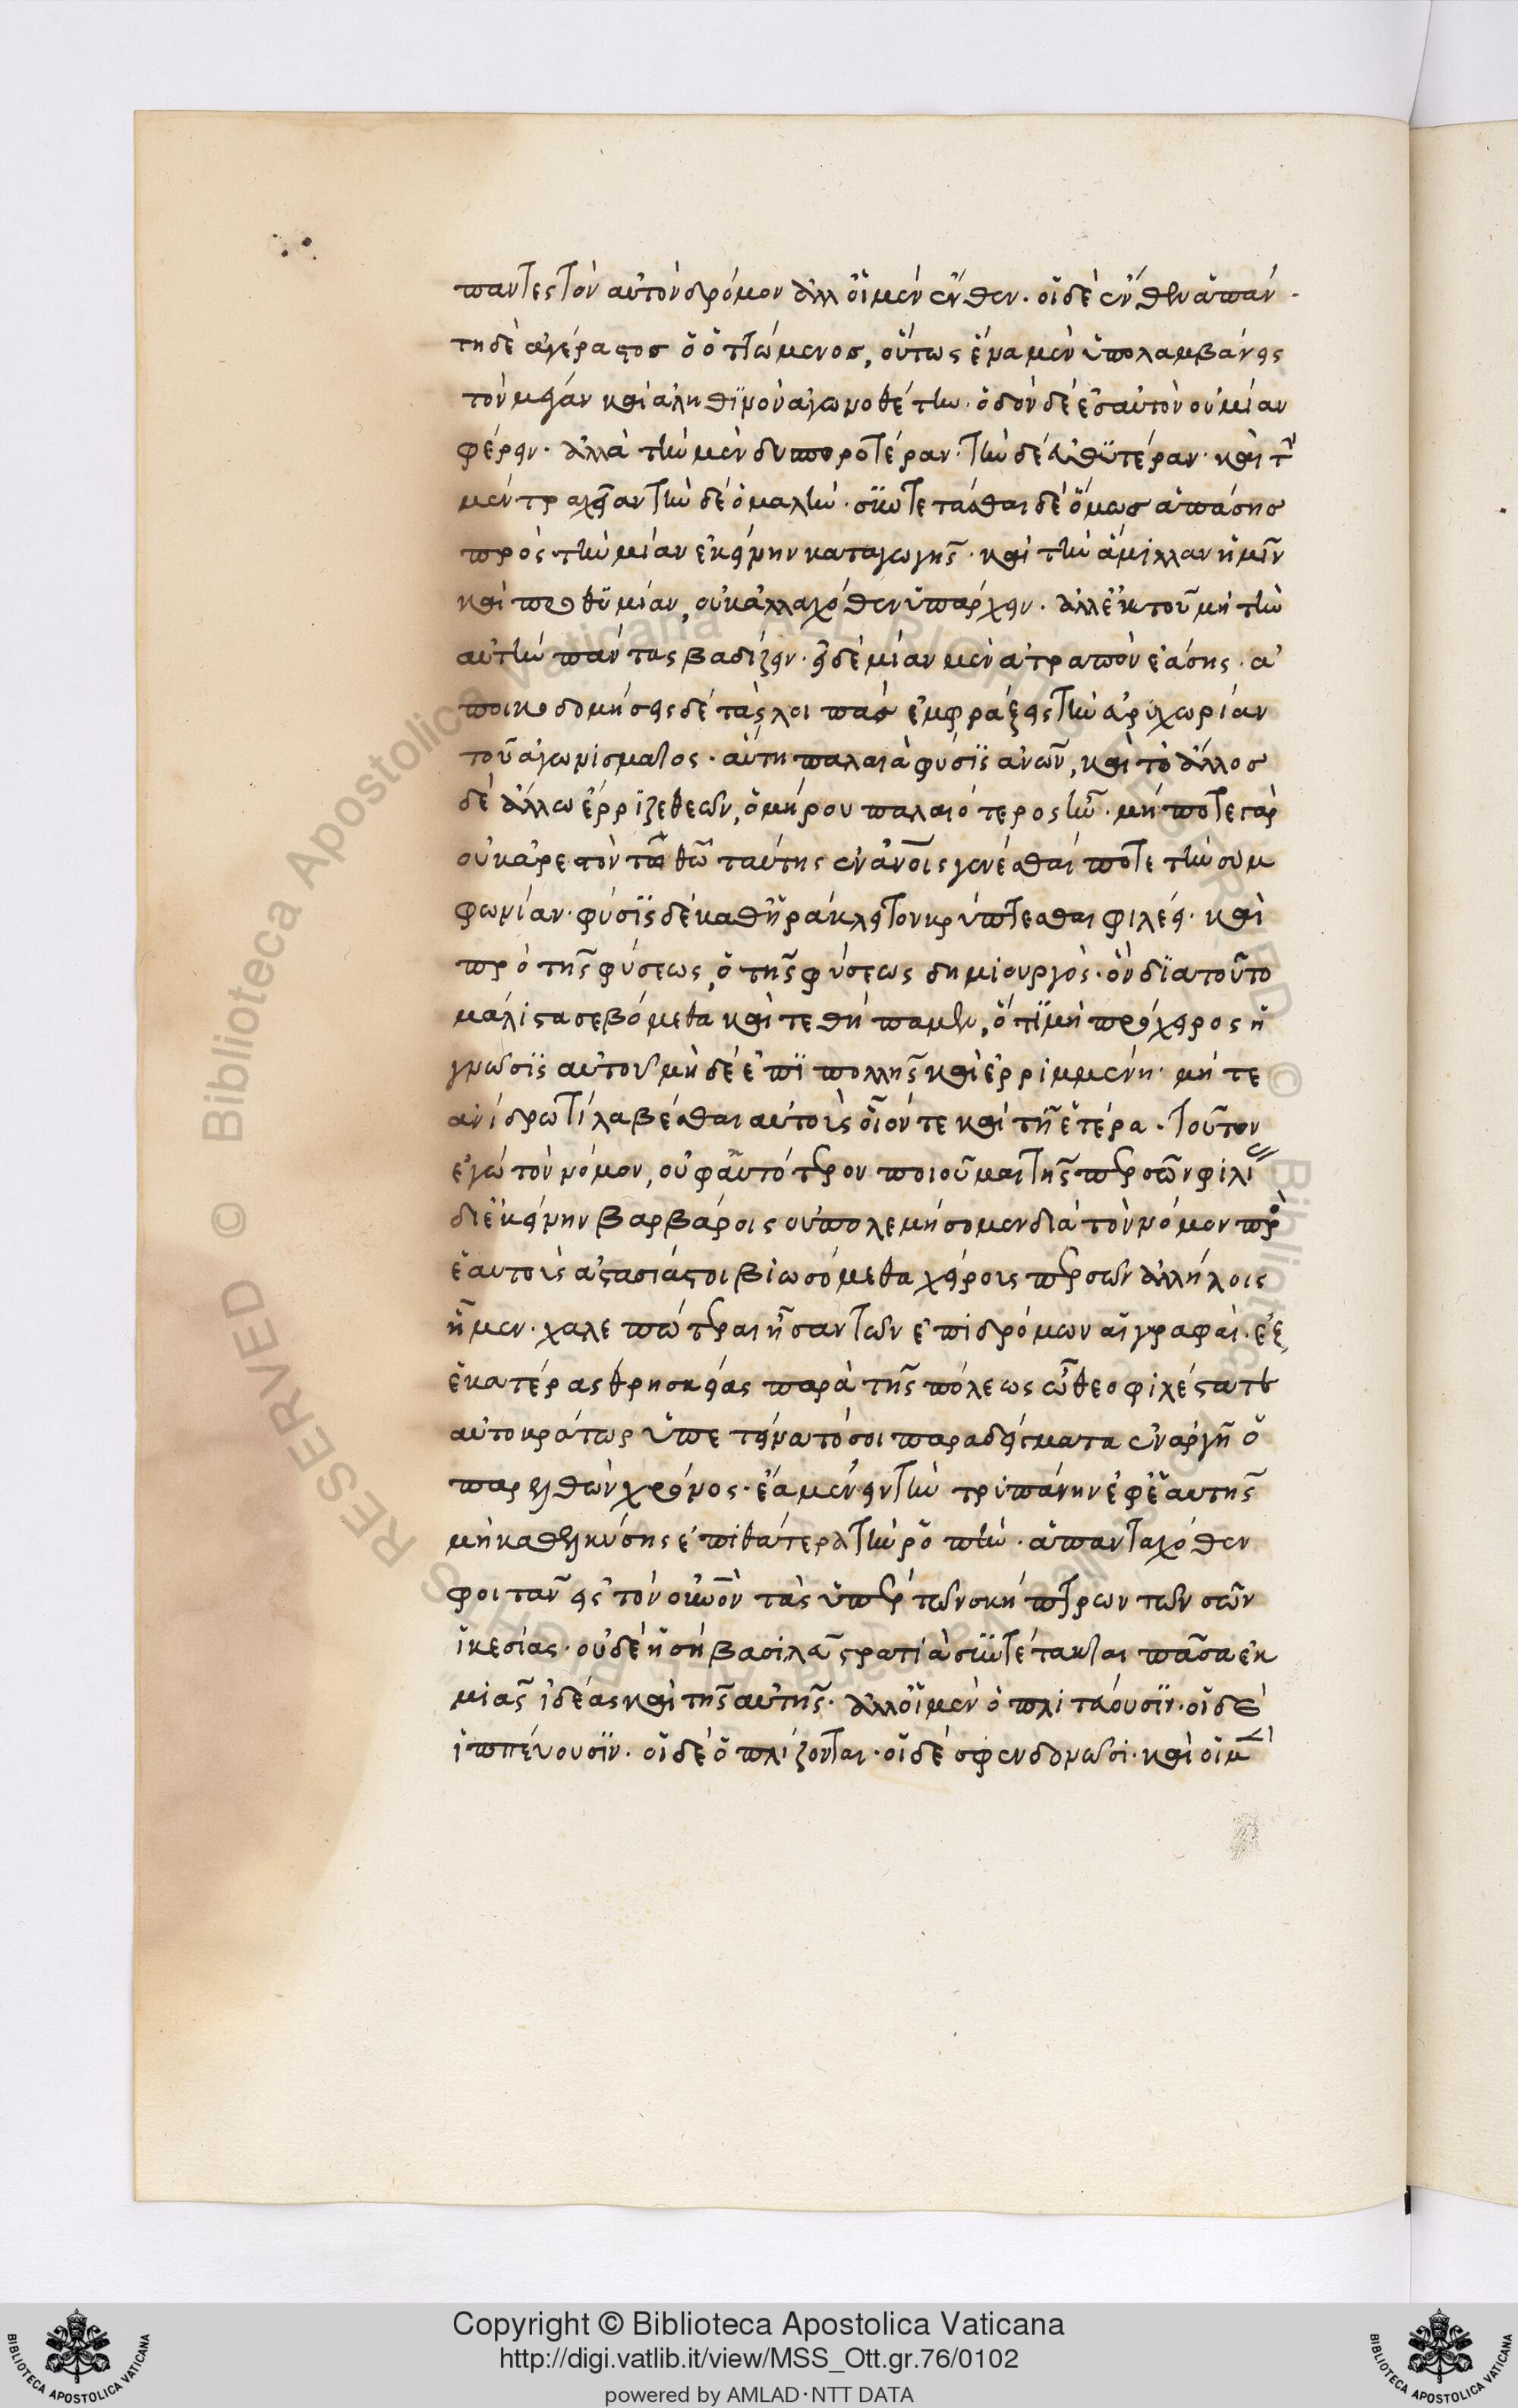 παντες τὸν αὐτὸν δρόμον ἀλλ οἱ μὲν ἔνθεν. οἱ δὲ ἔνθεν ἀπάν
τη δὲ ἀγέραστος ὁ ὁττώμενος, οὕτως ἕνα μὲν ὑπολαμβάνεις
τὸν μέγαν καὶ ἀληθϊνὸν ἀγωνοθέτην. ὁδὸν δὲ ἐς αὐτὸν οὐ μίαν
φέρειν. ἀλλὰ τὴν μὲν δυποροτέραν. τὴν δὲ εὐθϋτέραν. καὶ τὴν
μὲν τραχεῖαν τὴν δὲ ὁμαλήν. συντετάσθαι δὲ ὅμως ἁπάσης
πρὸς τὴν μίαν ἐκείνην καταγωγῆς. καὶ τὴν ἅμιλλαν ἡμῖν
καὶ προθϋμίαν, οὐκ ἀλλαχόθεν ὑπάρχειν. ἀλλ ἐκ τοῦ μὴ τὴν
αὐτὴν πάντας βαδίζειν. εἰ δὲ μίαν μὲν ἀτραπὸν ἐάσης. ἀ
ποικοδομήσεις δὲ τὰς λοιπὰς ἐμφράξεις τὴν εὐρυχωρίαν
τοῦ ἀγωνίσματος. αὕτη παλαιὰ φύσϊς ἀνων, καὶ τὸ ἄλλος
δὲ ἄλλω ἔρριζε θεῶν, ὁμήρου παλαιότερος ἦν. μήποτε γὰρ
οὐκ ἀρεστὸν τῶ θῶ ταύτης ἐν ἀνοις γενέσθαι ποτε τὴν συμ
φωνίαν. φύσϊς δὲ καθ ἡράκλειτον κρύπτεσθαι φιλεῖ. καὶ
πρὸ τῆς φύσεως, ὁ τῆς φύσεως δημιουργός. ὃν δϊα τοῦτο
μάλιστα σεβόμεθα καὶ τεθήπαμεν, ὅτϊ μὴ πρόχειρος ἡ
γνῶσϊς αὐτοῦ μὴ δὲ ἐπϊ πολλῆς καὶ ἐρριμμένη. μήτε
ἀνίδρωτὶ λαβέσθαι αὐτοῖς οἷόν τε καὶ τῆ ἑτέρα. τοῦτον
ἐγὼ τὸν νόμον, οὐ φαυτότερον ποιοῦμαι τῆς περσῶν φιλί
δι ἐκείνην βαρβάροις οὐ πολεμήσομεν διὰ τὸν νόμον πρ
ἑαυτοῖς ἀστασίαστοι βιωσόμεθα χείρους περσῶν ἀλλήλοις
ἦμεν. χαλεπώτεραι ἦσαν τῶν ἐπιδρόμων αἱ γραφαί. ἐξ
ἑκατέρας θρησκείας παρὰ τῆς πόλεως ὦ θεοφιλέστατε
αὐτοκράτωρ ὑπετείνατό σοι παραδείγματα ἐναργῆ ὁ
παρελθὼν χρόνος. ἔα μένειν τὴν τρυτάνην ἐφ ἑαυτῆς
μὴ καθελκύσης ἐπὶ θάτερα τὴν ῥοπήν. ἁπανταχόθεν
φοιτᾶν εἰς τὸν οὐνὸν τὰς ὑπὲρ τῶν σκήπτρων τῶν σῶν
ἱκεσίας. οὐδὲ ἡ σὴ βασίλεια στρατιὰ συντέτακται πᾶσα ἐκ
μιᾶς ἰδέας καὶ τῆς αὐτῆς. ἀλλ οἱ μὲν ὁπλιτεύουσϊν. οἱ δὲ
ἱππεύουσϊν. οἱ δὲ ὁπλίζονται. οἱ δὲ σφενδονῶσι. καὶ οἱ μὲν
Copyright © Biblioteca Apostolica Vaticana
http://digi.vatlib.it/view/MSS_Ott.gr.76/0102
powered by AMLAD·NTT DATA